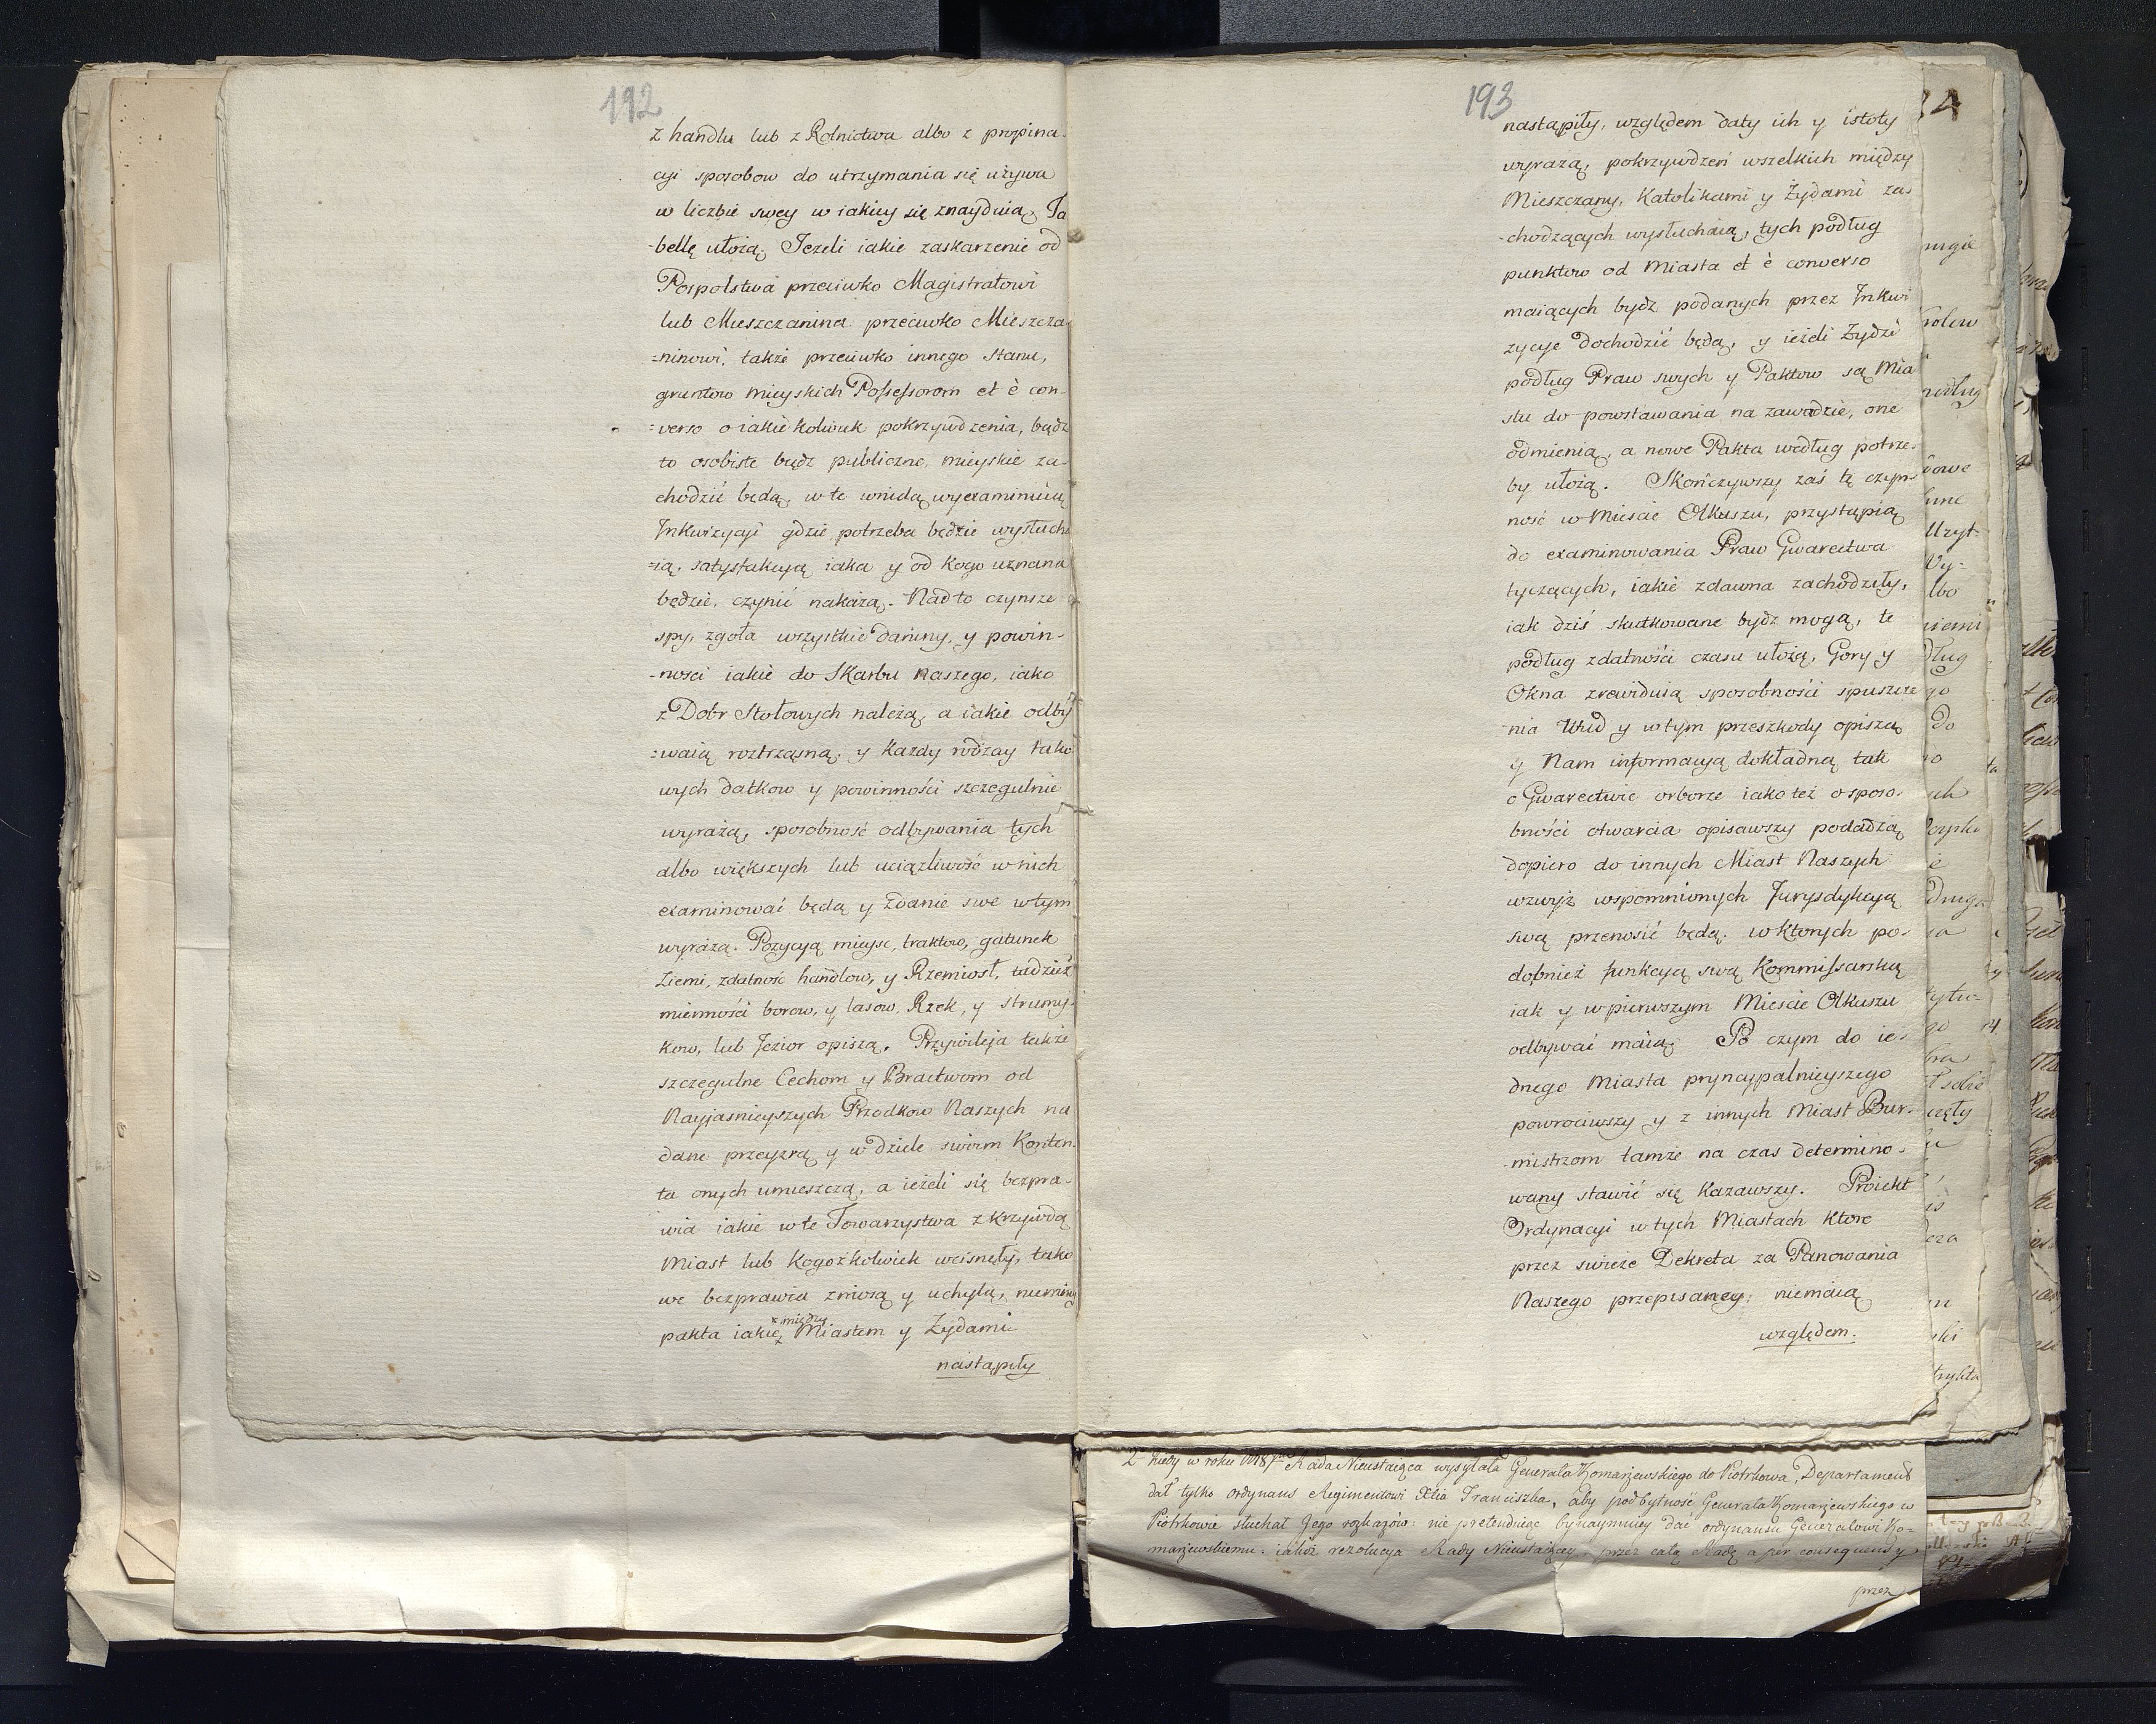 192
z handlu lub z Rolnictwa albo z propina-
cyi sposobow do utrzymania się używa
w liczbie swey w iakiey się znayduią, Ta
-bellę ułożą; Jeżeli iakie zaskarzenie od
Pospolstwa przeciwko Magistratowi
lub Mieszczanina przeciwko Mieszcza
=ninowi, także przeciwko innego stanu,
gruntow mieyskich Possessorom et è con-
=verso o iakie kolwiek pokrzywdzenia, bądz
to osobiste bądz publiczne, mieyskie za-
chodzić będą, w te wnidą wyexaminuią
Inkwizycyi gdzie potrzeba będzie wysłucha
=ią, satysfakcyą iaka y od kogo uznana
będzie, czynić nakażą. Nadto czynsze
spy, zgoła wszystkie daniny, y powin-
-ności iakie do Skarbu Naszego, iako
z Dobr Stołowych należą, a iakie odby
=waią roztrząsną, y każdy rodzay tako
wych datkow y powinności szczegulnie
wyrażą, sposobność odbywania tych
albo większych lub uciążliwość w nich
examinować będą y zdanie swe w tym
wyrażą. Pozycyą mieysc, traktow, gatunek
Ziemi, zdatność handlow, y Rzemiosł, tudzież
mienności borow, y lasow, Rzek, y strumy-
kow, lub Jezior opiszą. Przywileja także
szczegulne Cechom y Bractwom od
Nayjaśnieyszych Przodkow Naszych na
dane przeyzrą y w dziele swoim Konten-
ta onych umieszczą, a ieżeli się bezpra-
wia iakie w te Towarzystwa z krzywdą
Miast lub kogożkolwiek wcisnęły, tako
we bezprawia zniosą y uchylą, niemniey
x między
pakta iakie x Miastem y Żydami
nastąpiły
193
nastąpiły, względem daty ich y istoty
wyrażą, pokrzywdzeń wszelkich między
Mieszczany, Katolikami y Żydami za-
-chodzących wysłuchaią, tych podług
punktow od Miasta et è converso
maiących bydz podanych przez Inkwi
zycye dochodzić będą, y ieżeli Żydzi
podług Praw swych y Paktow są Mia
stu do powstawania na zawadzie, one
odmienią, a nowe Pakta według potrze-
by ułożą. Skończywszy zaś tę czyn-
ność w Mieście Olkuszu, przystąpią
do examinowania Praw Gwarectwa
tyczących, iakie zdawna zachodziły,
iak dziś skutkowane bydz mogą, te
podług zdatności czasu ułożą, Gory y
Okna zrewiduią sposobności spuszcze
-nia Wód y w tym przeszkody opiszą
y Nam informacyą dokładną tak
o Gwarectwie orborze iako też o sposo-
bności otwarcia opisawszy podadzą
dopiero do innych Miast Naszych
wzwyż wspomnionych Jurysdykcyą
swą przenosić będą, w ktorych po-
dobnież funkcyą swą Kommissarską
iak y w pierwszym Mieście Olkuszu
odbywać maią; Po czym do ie-
dnego Miasta pryncypalnieyszego
powrociwszy y z innych Miast Bur-
-mistrzom tamże na czas determino-
wany stawić się kazawszy. Proiekt
Ordynacyi w tych Miastach ktore
przez świeże Dekreta za Panowania
Naszego przepisaney, niemaią
względem.
2do Kiedy w roku 1787mo Rada Nieustaiąca wysyłała Generała Komarzewskiego do Piotrkowa, Departament
dał tylko ordynans Regimentowi Xcia Franciszka, aby pod bytność Generała Komarzewskiego w
Piotrkowie słuchał Jego rozkazów: nie pretenduiąc bynaymniey dać ordynansu Generałowi Ko-
marzewskiemu: iakoż rezolucya Rady Nieustaiącey, przez całą Radę a per consequens y
przez